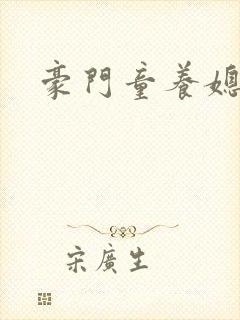 豪門童養媳
宋廣生